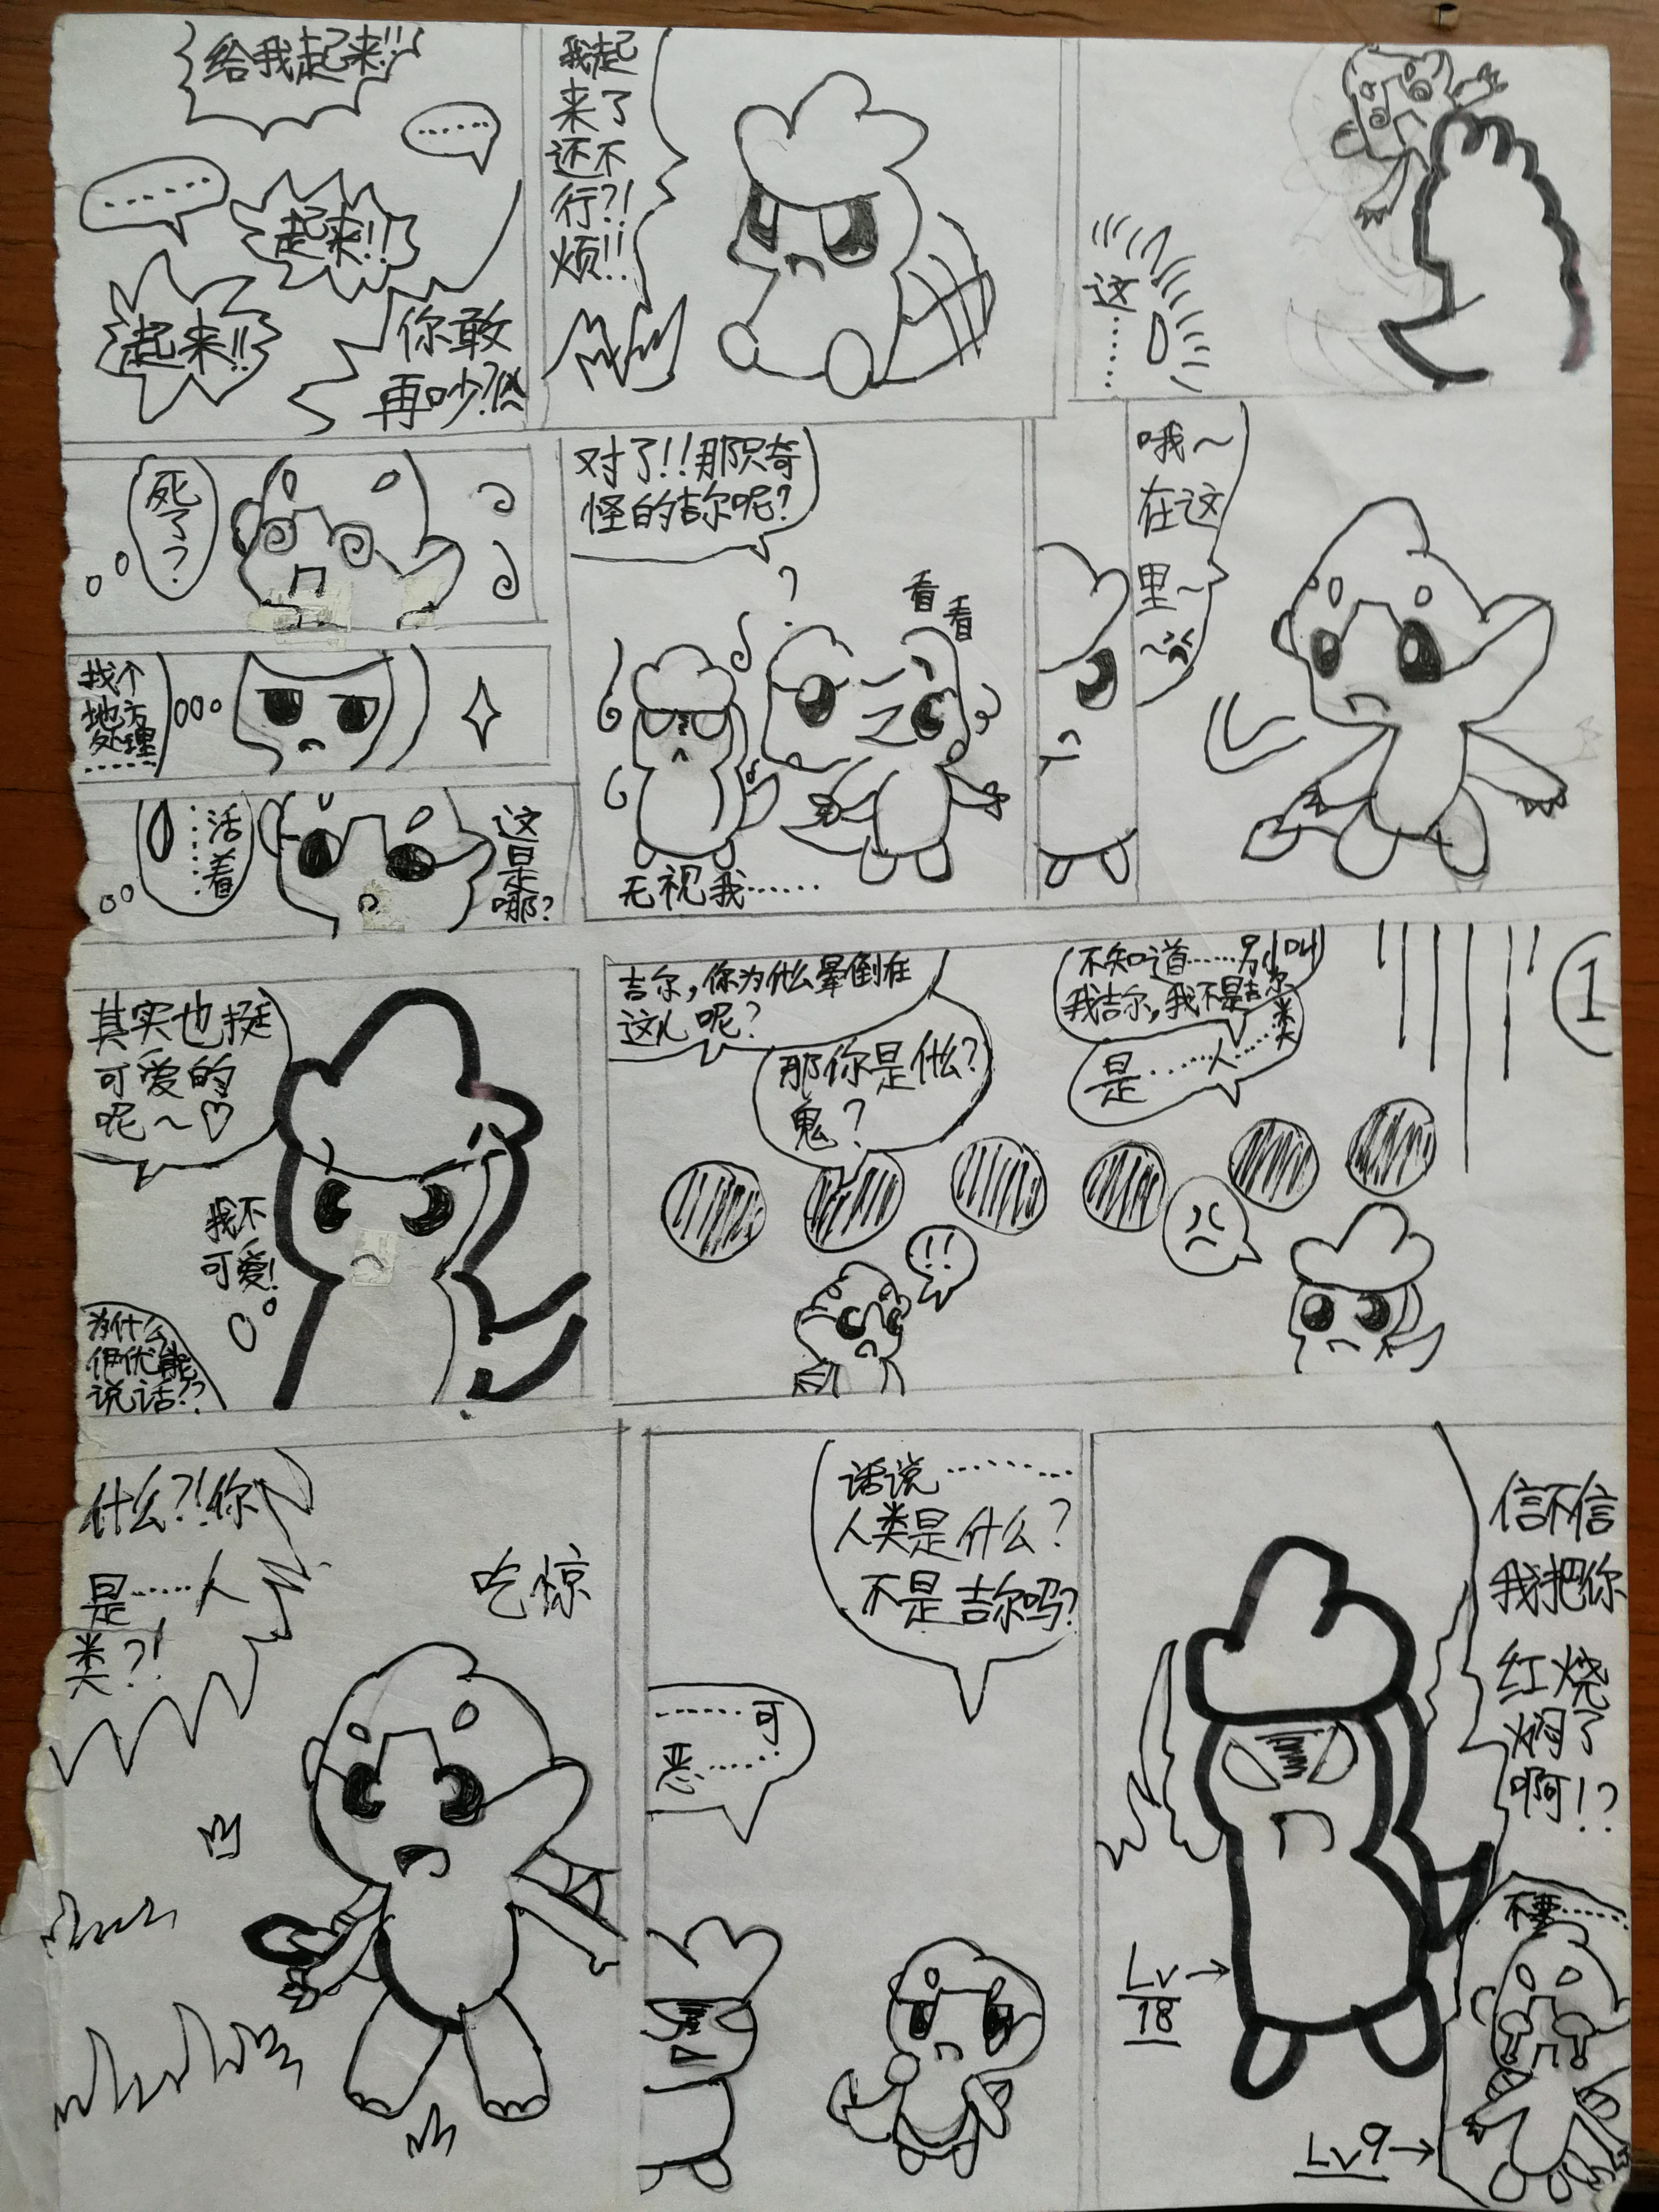 给我起来!!
……
……
起来!!
起来!!
你敢
再吵?
我起
来了
还不
行?!
烦!!
这
……
死
了
?
找个
地方
处理
……
……活着
这是哪?
对了!!那只奇
怪的吉尔呢?
?
看看
无视我……
哦～
在这
里～
其实也挺
可爱的
呢～♡
我不
可爱!
为什么
能
说话??
吉尔,你为什么晕倒在
这儿呢?
那你是什么?
鬼?
!!
不知道……别叫
我吉尔,我不是吉尔
是……人……类
1
什么?!你
是……人
类?!
吃惊
话说……
人类是什么?
不是吉尔吗?
……可
恶……
信不信
我把你
红烧
焖了
啊!?
不要……
Lv→
18
Lv9→